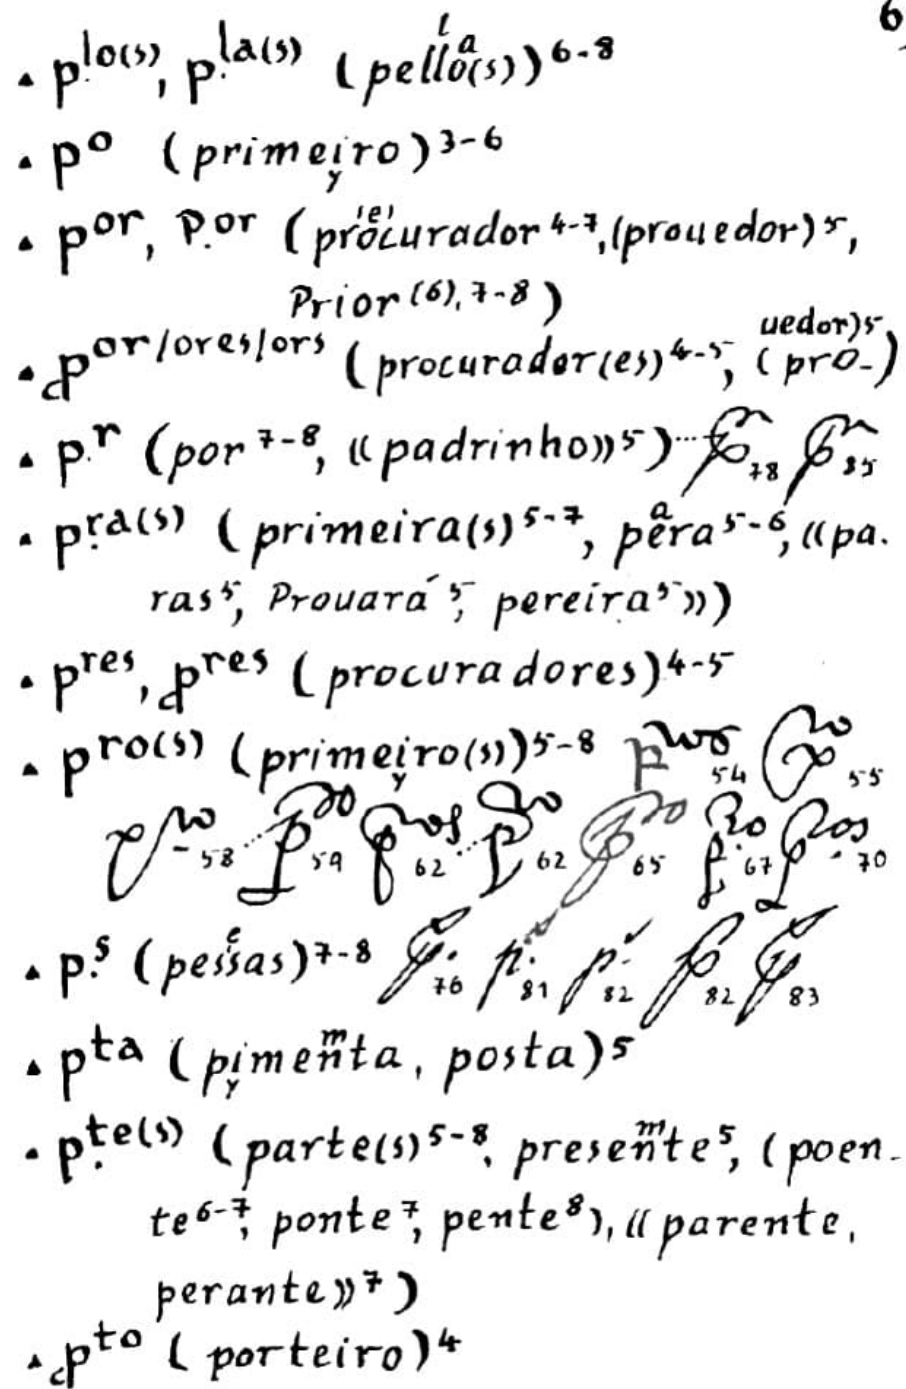 6
▴ p.lo(s), p.la(s) (pello(s))6-8
l a
▴ po (primeiro)3-6
y
▴ por, P.or (procurador 4-7, (prouedor)5,
'e'
Prior(6), 7-8)
▴ por/ores/ors (procurador(es)4-5, (pro-)
uedor)5
▴ p.r (por 7-8, «padrinho»5) ... 78 85
▴ p.ra(s) (primeira(s)5-7, pera5-6, «pa-
a
ras5, Prouará5, pereira5»)
▴ pres, pres (procuradores)4-5
▴ pro(s) (primeiro(s))5-8 54 55
y
58 ... 59 62 ... 62 65 67 70
▴ p.s (pessas)7-8 76 81 82 82 83
e
▴ pta (pimenta, posta)5
y m
▴ p.te(s) (parte(s)5-8, presente5, (poen-
m
te6-7, ponte7, pente8), «parente,
perante»7)
▴ pto (porteiro)4